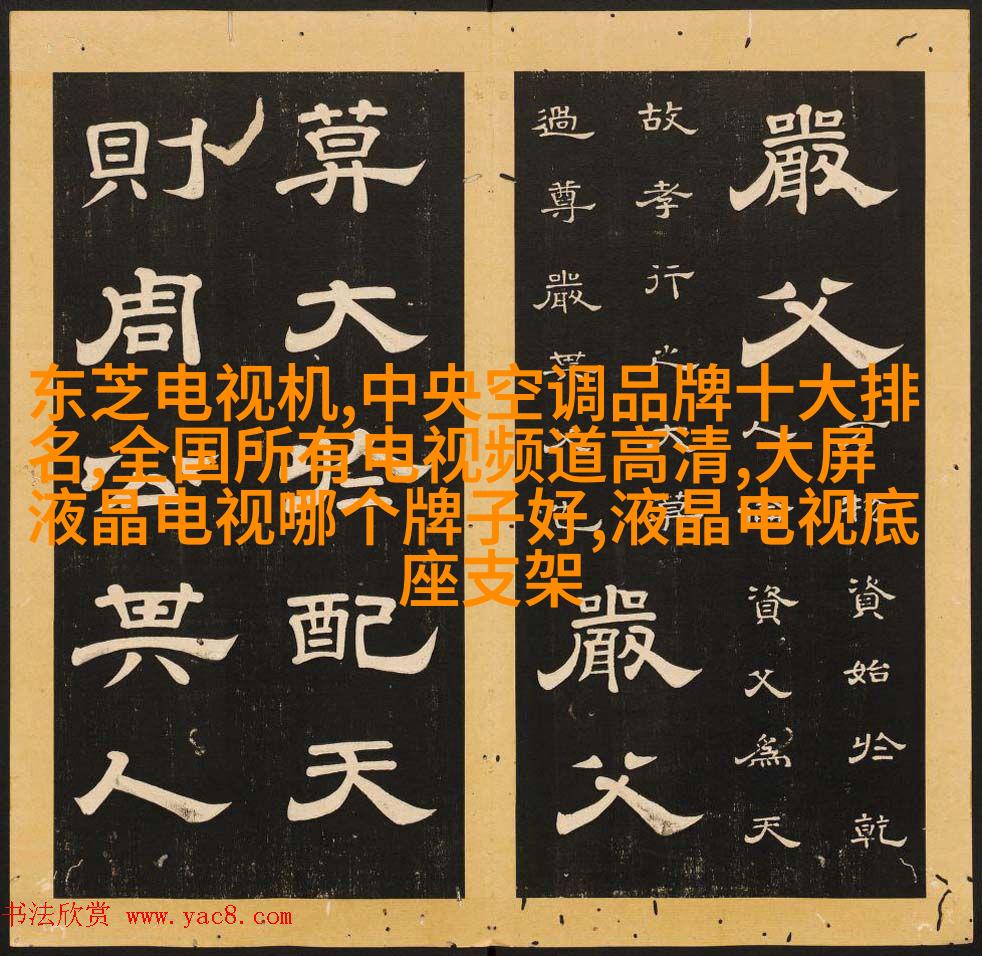 东芝电视机,中央空调品牌十大排
名,全国所有电视频道高清,大屏
液晶电视哪个牌子好,液晶电视底
座支架
嚴父
物資始於乾
人倫資父為天
故孝行之大莫
過尊嚴其父也
嚴父
莫大於配天
則周公其人
书法欣赏 www.yac8.com